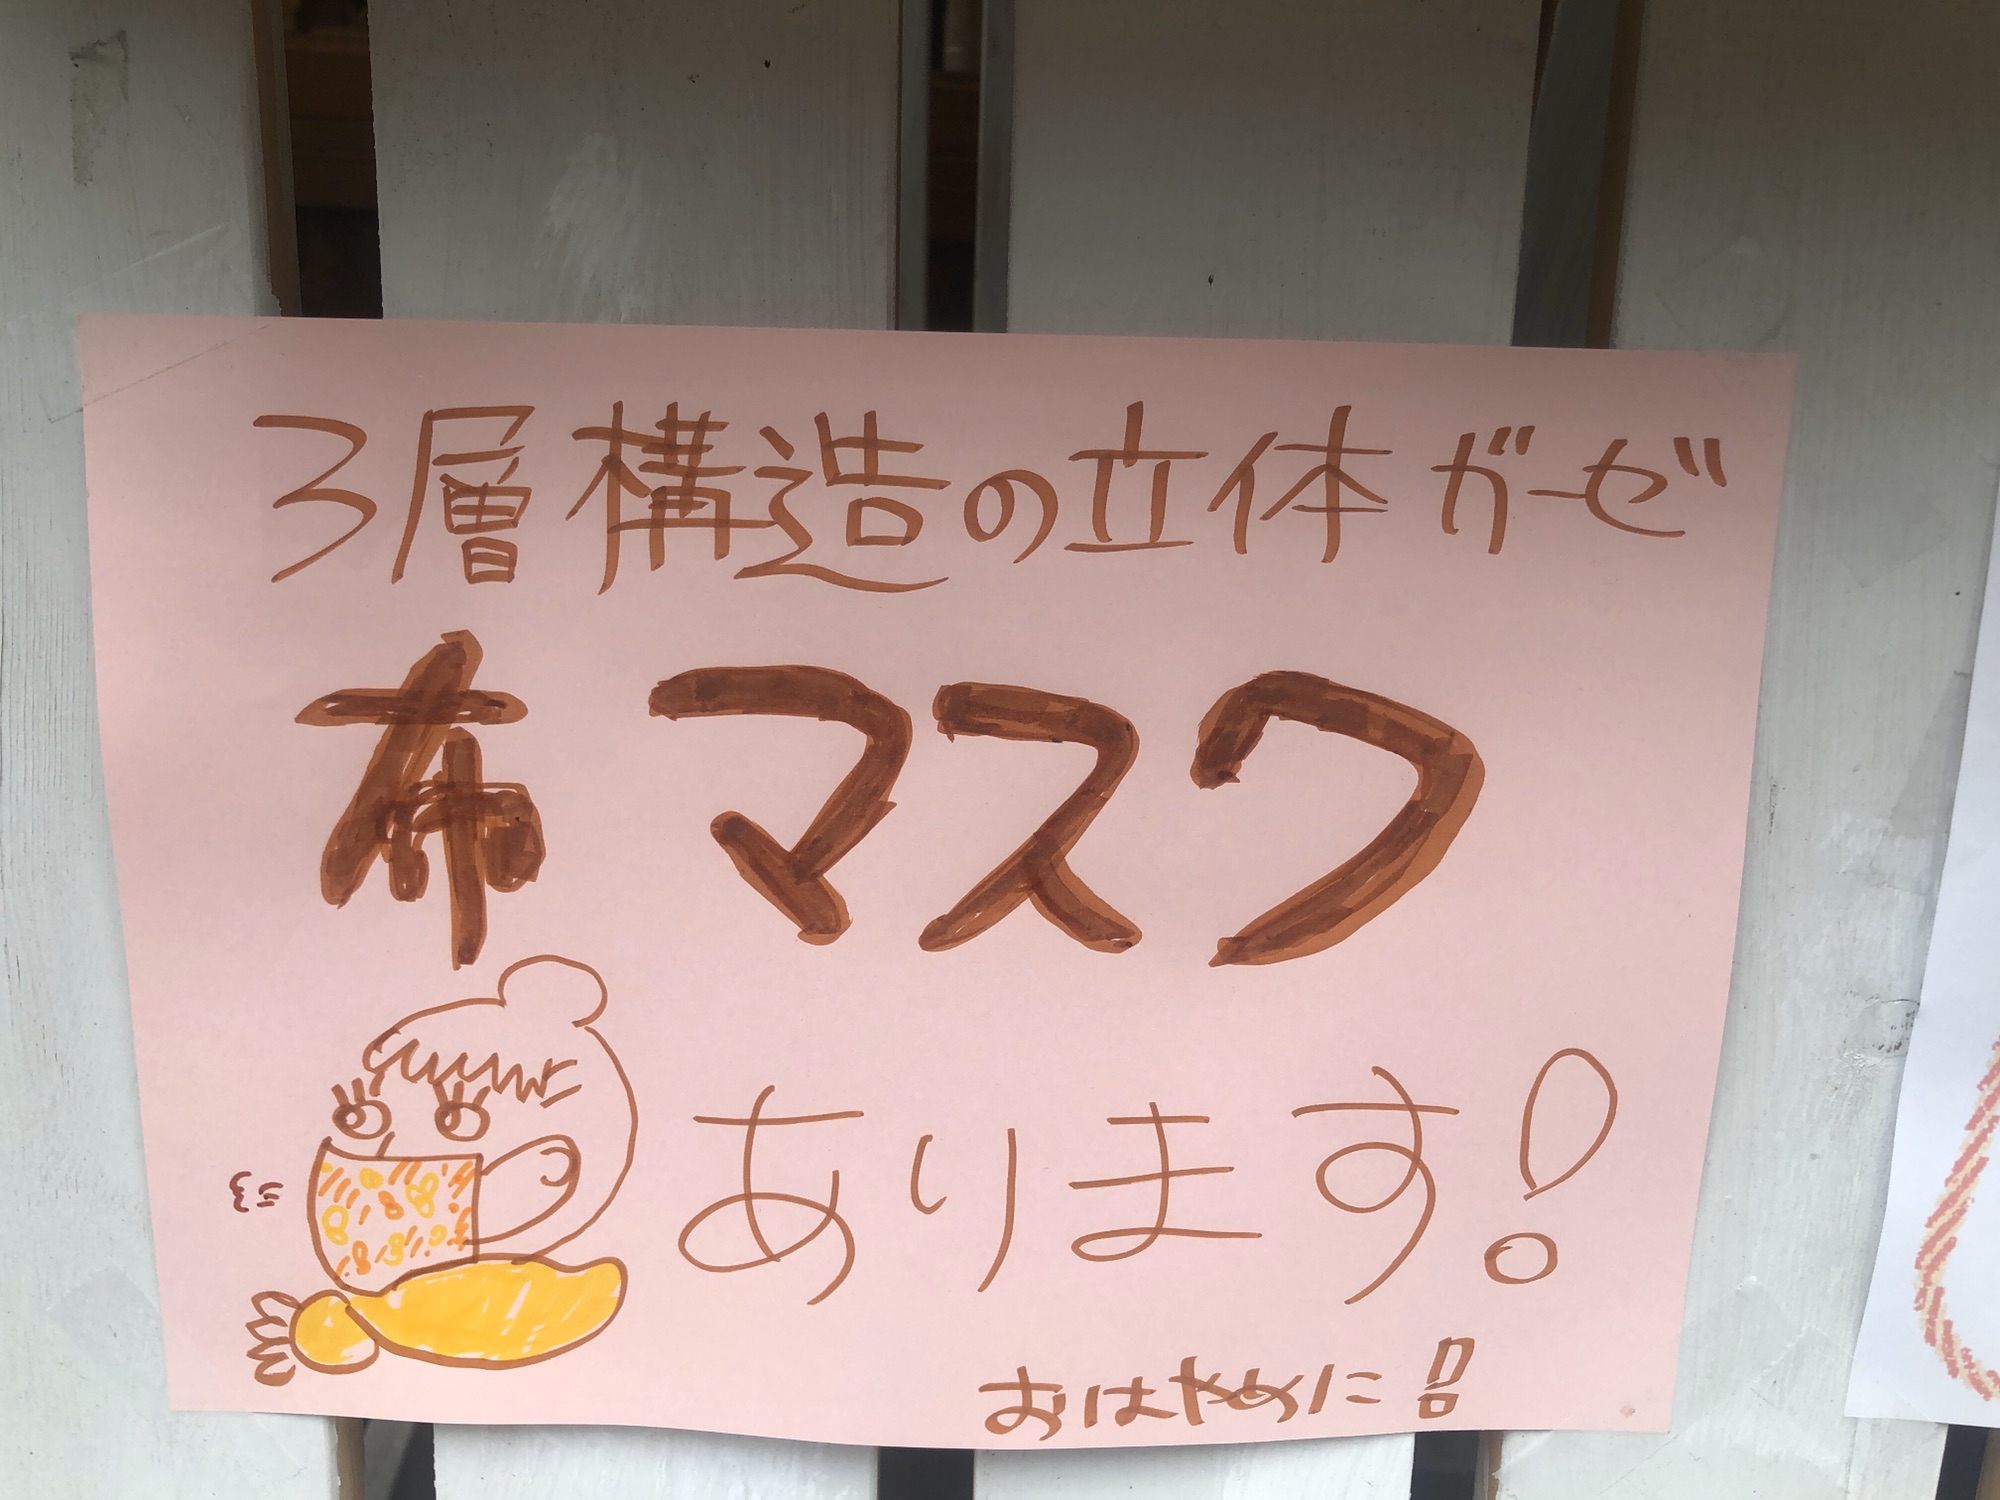 3層構造の立体ガーゼ
布マスク
あります!
おはやめに!